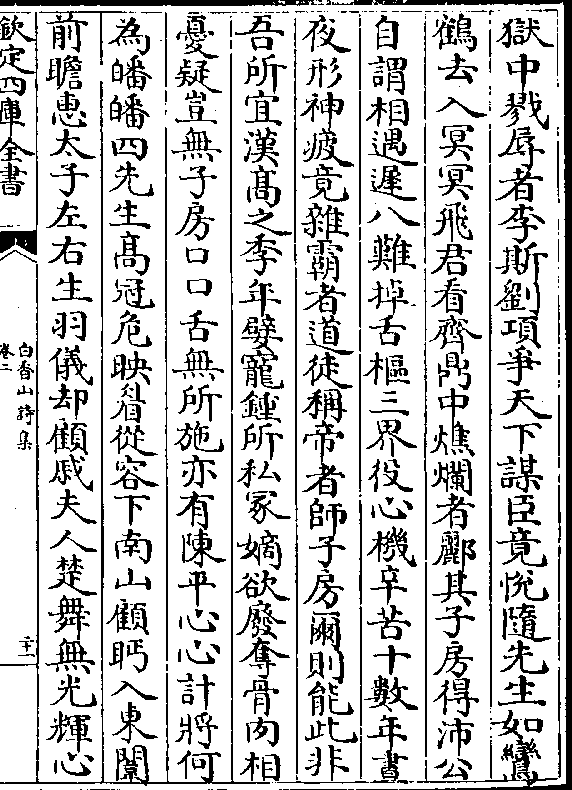 獄中戮辱者李斯劉項爭天下謀臣竟悅隨先生如鸞
鶴去入冥冥飛君看齊鼎中燋爛者酈其子房得沛公
自謂相遇遲八難掉舌樞三畧役心機辛苦十數年晝
夜形神疲竟雜霸者道徒稱帝者師子房爾則能此非
吾所宜漢髙之季年嬖寵鍾所私冢嫡欲廢奪骨肉相
憂疑豈無子房口口舌無所施亦有陳平心心計將何
為皤皤四先生髙冠危映眉從容下南山顧眄入東闈
前瞻惠太子左右生羽儀却顧戚夫人楚舞無光輝心
欽定四庫全書
白香山詩集
卷二
二十一